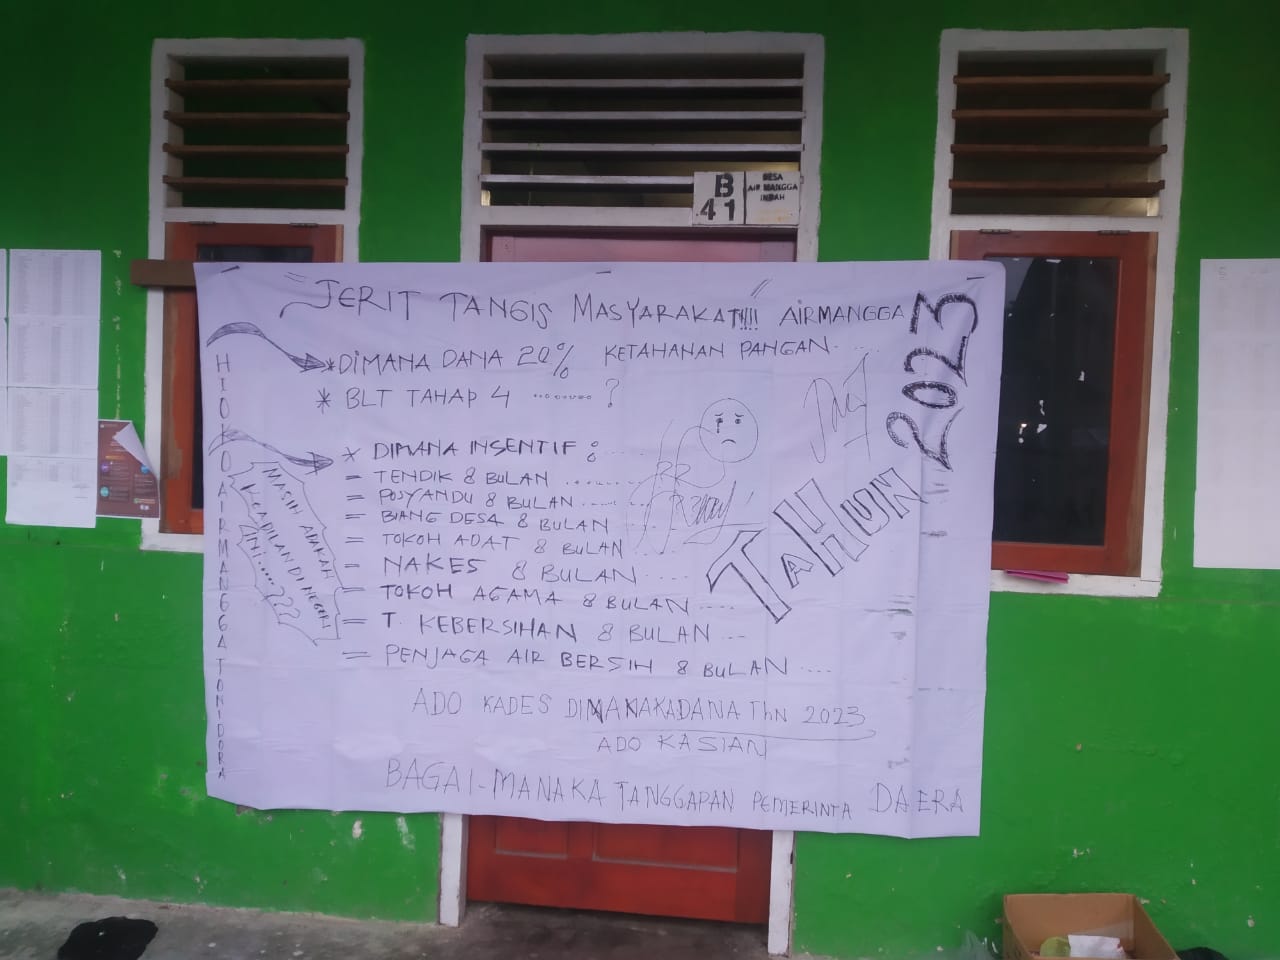 B
41
DESA
AIR MANGGA
INDAH
JERIT TANGIS MASYARAKAT!!!! AIRMANGGA
*DIMANA DANA 20% KETAHANAN PANGAN.....
* BLT TAHAP 4 ........ ?
* DIMANA INSENTIF : .....
= TENDIK 8 BULAN ........
= POSYANDU 8 BULAN .....
= BIANG DESA 8 BULAN .....
= TOKOH ADAT 8 BULAN ....
= NAKES 8 BULAN ....
= TOKOH AGAMA 8 BULAN ....
= T. KEBERSIHAN 8 BULAN ...
= PENJAGA AIR BERSIH 8 BULAN ....
TAHUN 2023
MASIH ADAKAH
KEADILAN DI NEGERI
SINI.....???
ADO KADES DIMANAKADANA Thn 2023
ADO KASIAN
BAGAI-MANAKA TANGGAPAN PEMERINTA DAERA